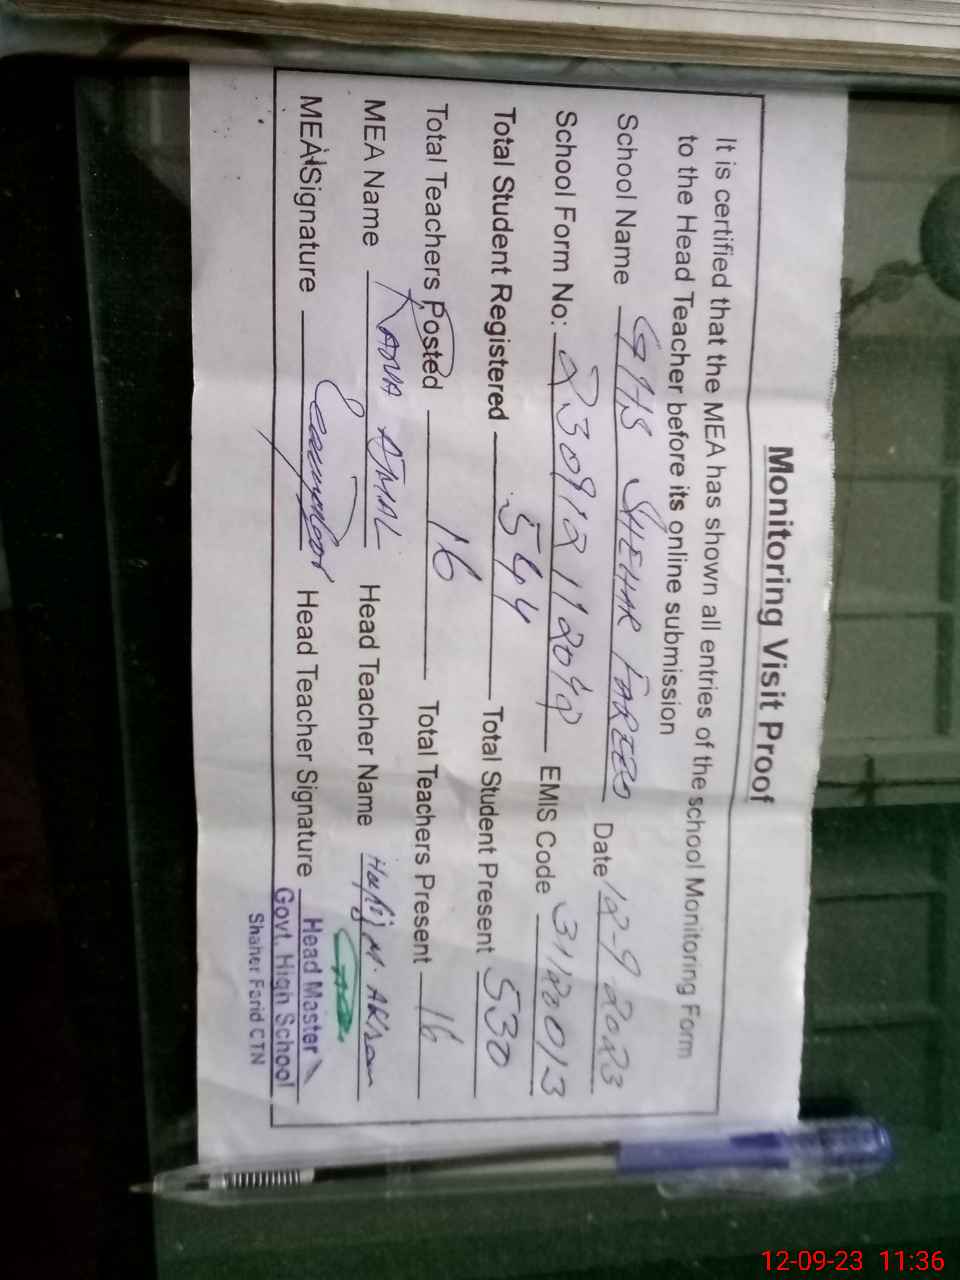 Monitoring Visit Proof
It is certified that the MEA has shown all entries of the school Monitoring Form
to the Head Teacher before its online submission
School Name GHS SHEHAR FAREED Date 12-9 2023
School Form No: EMIS Code 31120013
Total Student Registered 544 Total Student Present 530
Total Teachers Posted 16 Total Teachers Present 16
MEA Name RANA AJMAL Head Teacher Name Hafiz M. Akram
MEA Signature Head Teacher Signature
Head Master
Govt. High School
Shaher Farid CTN
12-09-23 11:36